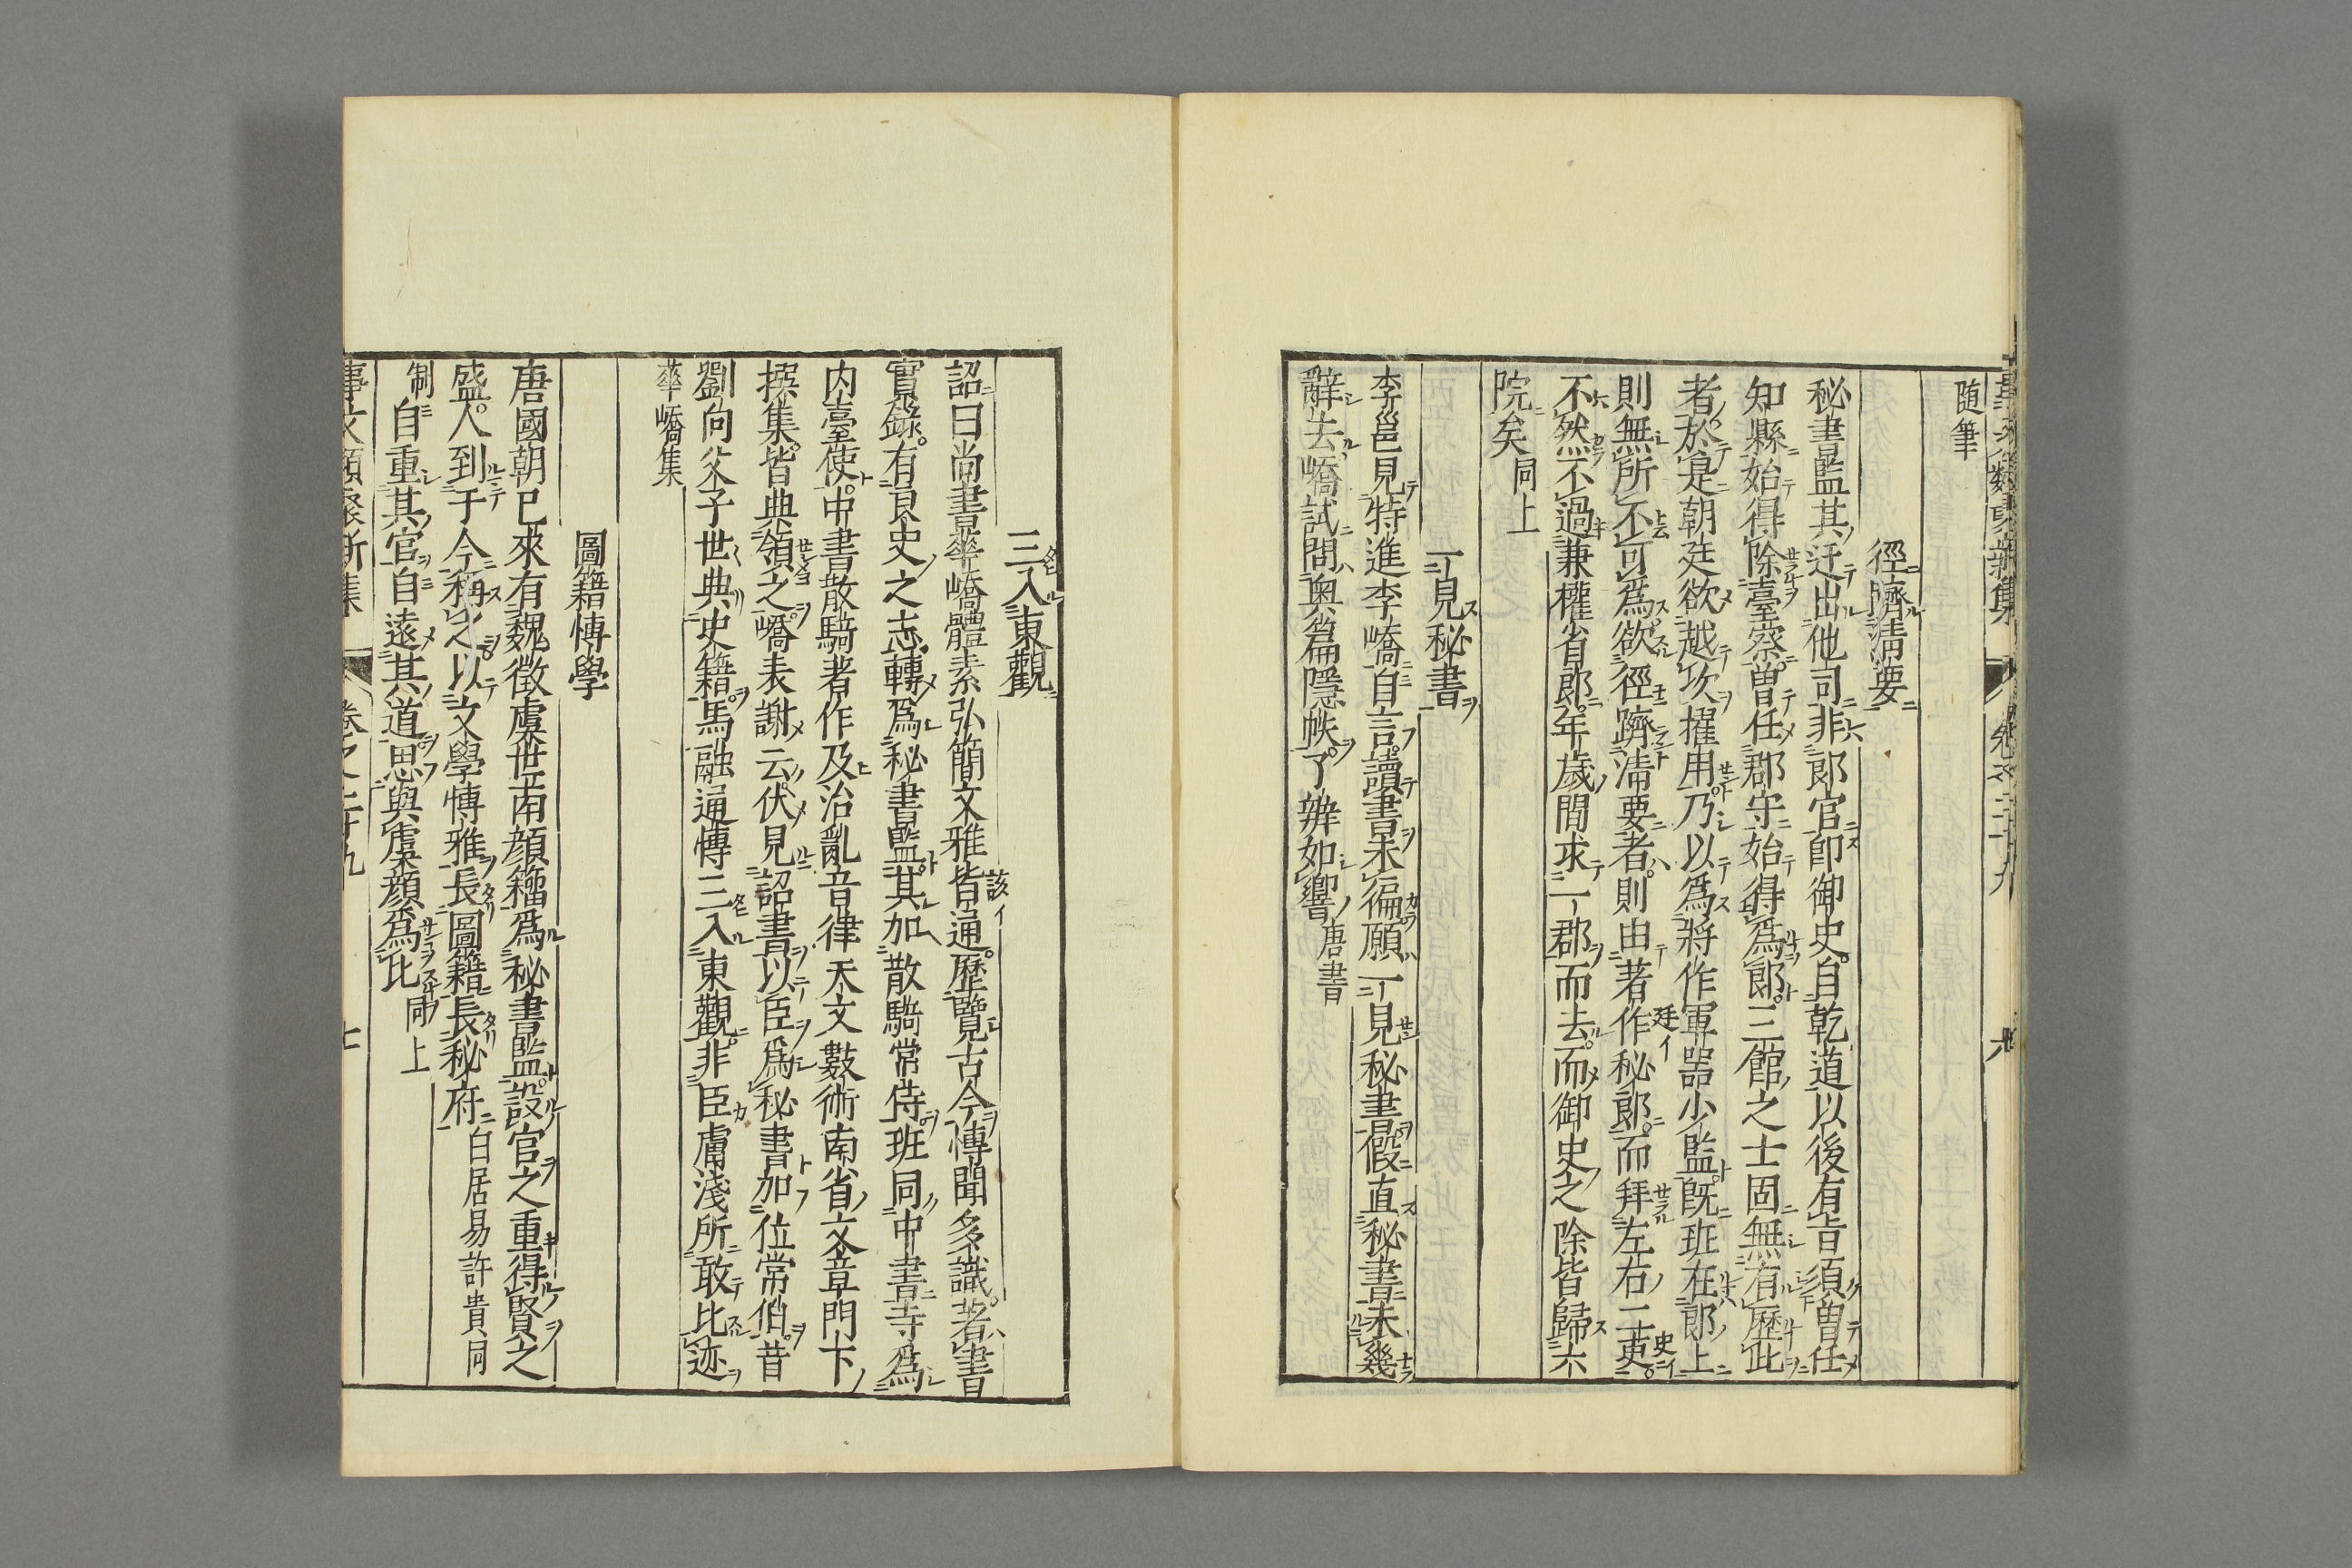 随筆
徑躋清要
秘書監其迁出他司非郎官即御史自乾道以後有旨須曽任
知縣始得除臺察曽任郡守始得爲郎三館之士固無有歷此
者於是朝廷欲越次擢用乃以爲將作軍器少監既班在郎上
則無所不可爲欲徑躋清要者則由著作秘郎而拜左右二吏
不然不過兼權省郎年歲間求一郡而去而御史之除皆歸六
院矣同上
一見秘書
李邕見特進李嶠自言讀書未徧願一見秘書假直秘書未幾
辭去嶠試問奥篇隱帙了辨如響唐書
三入東觀
詔曰尚書華嶠體素弘簡文雅皆通歷覽古今博聞多識著書
實錄有良史之志轉爲秘書監其加散騎常侍班同中書寺爲
内臺使中書散騎著作及治亂音律天文數術南省文章門下
撰集皆典領之嶠表謝云伏見詔書以臣爲秘書加位常伯昔
劉向父子世典史籍馬融通博三入東觀非臣膚淺所敢比迹
華嶠集
圖籍博學
唐國朝已來有魏徵虞世南顔籀爲秘書監設官之重得賢之
盛人到于今稱之以文學博雅長圖籍長秘府白居易許貴同
制自重其官自遠其道思與虞顔爲比同上
事文類聚新集 卷之二十九 七